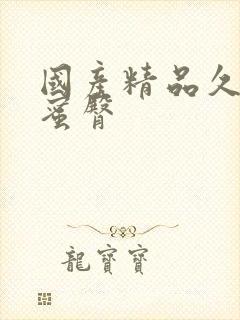 國產精品久
蜜臀
龍寶寶